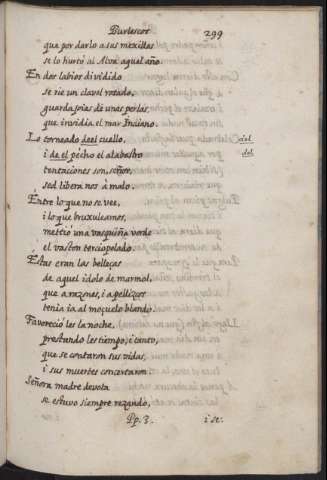 Burlescos 299
que por darlo a sus mexillas
se lo hurtó al Alva aquel año.
En dos labios dividido
se rie un clavel rotado,
guardajoias de unas perlas,
que invidia el mar Indiano.
Lo torneado deel cuello, del
i de el pecho el alabastro del
tentaciones son, señor,
sed libera nos à malo.
Entre lo que no se vee,
i lo que bruxuleamos,
metió una vasquiña verde
el baston terciopelado.
Estas eran las belleças
de aquel idolo de marmol,
que a razones, i a pelliscos
tenia ia al moçuelo blando.
Favoreció les la noche,
prestando les tiempo; i tanto,
que se contaron sus vidas,
i sus muertes concertaron.
Señora madre devota
se estuvo siempre rezando,
Pp. 3. i se